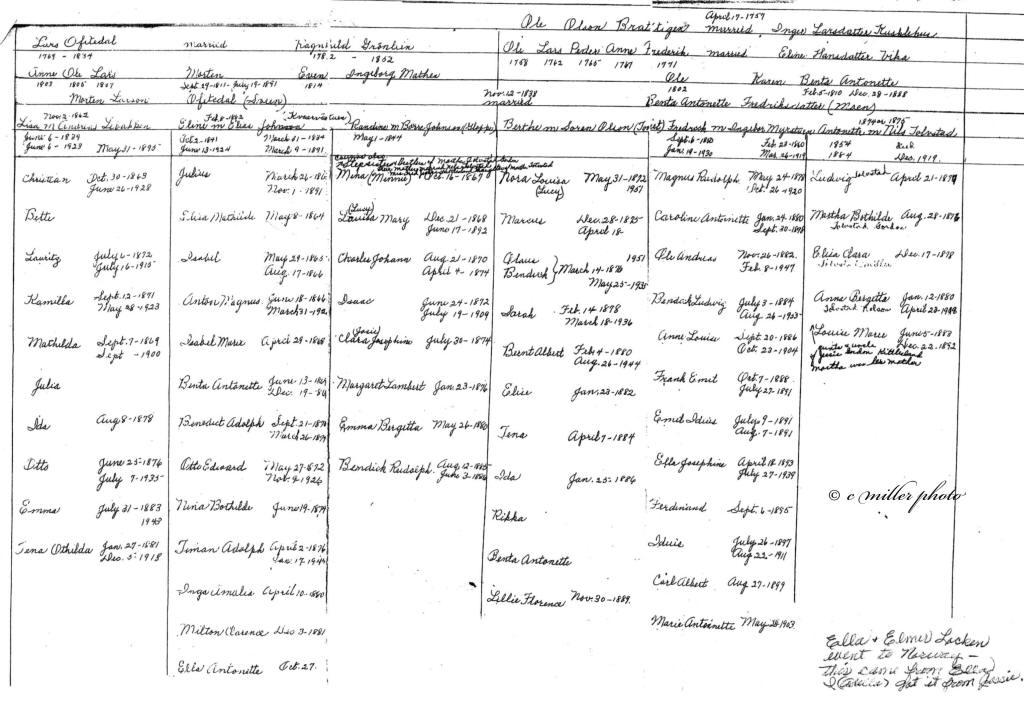 Ole Olson Brattigen married Inger Larsdatter
April 17-1757
Lars Ofstedal married Ragnhild Grönlien
1769 - 1834 1782 - 1852
Ole Lars Peder Anne Fredrik married Eline Hansdatter Vika
1758 1762 1765 1767 1771
Anne Ole Lars Morten Even Ingeborg Mathea
1803 1805 1807 Sept 29-1811-July 19-1891 1814
Ole Karen Benta Antonette
1802 Feb 5-1810 Dec. 28-1888
Morten Larson Ofstedal (Green)
Nov. 12-1838
married
Benta Antonette Fredriksdatter (Moen)
Nov. 2-1862
Lisa M. Andreas
June 6-1839
June 6-1923 May 31-1895
Eline m Elias Johnson
Oct 2-1841 March 31-1834
June 13-1924 March 9-1891
m Borre Johnson
May 1-1844
Berthe m Soren Olson
Fredrick m Ingebor Myrstuen
Sept. 6-1850 Feb 23-1860
Jan. 19-1930 Mar. 26-1919
Antonette m Nils Tolvstad
1874 or 1875
1854
1884 Dec. 1919.
Christian Oct. 30-1863
June 26-1928
Bette
Lauritz July 6-1872
July 16-1915
Kamilla Sept. 12-1871
May 28-1923
Mathilda Sept. 7-1869
Sept -1900
Julia
Ida Aug 8-1878
Otto June 25-1876
July 7-1935
Emma July 31-1883
1943
Tena Othilda Jan. 27-1881
Dec. 5-1918
Julius March 26-
Nov. 1-1891
Elisa Mathilde May 8-1864
Isabel May 29-1865
Aug. 17-1866
Anton Magnus June 18-1866
March 31-
Isabel Marie April 29-1868
Benta Antonette June 13-
Dec. 19-
Benedict Adolph Sept. 21-
March 26-
Otto Edward May 27-1872
Nov. 9-1926
Nina Bothilde June 19-1874
Timan Adolph April 2-1876
Jan. 17-
Inga Amalia April 10-1880
Milton Clarence Dec 3-1881
Ella Antonette Oct. 27.
Mina (Minnie) Oct. 16-1867
(Lucy)
Louisa Mary Dec. 21-1868
June 17-1892
Charles Johann Aug 21-1870
April 4-1874
Isaac June 24-1872
July 19-1909
(Josie)
Clara Josephine July 30-1874
Margaret Lambert Jan. 23-1876
Emma Bergetta May 26-1880
Bendick Rudolph Aug. 12-1885
June 3-1886
Nora Louisa May 31-1872
(Lucy) 1951
Marcus Dec. 28-1875
April 18-
Olaus 1951
Bendick } March 14-1876
May 25-1935
Sarah Feb. 14 1878
March 18-1936
Bernt Albert Feb 4-1880
Aug. 26-1944
Elise Jan. 23-1882
Tena April 7-1884
Ida Jan. 25-1886
Rikka
Benta Antonette
Lillie Florence Nov. 30-1889.
Magnus Rudolph May 24-1878
Oct. 26-1920
Caroline Antoinette Jan. 24-1880
Sept. 30-1898
Ole Andreas Nov. 26-1882.
Feb. 8-1947
Bendick Ludwig July 3-1884
Aug. 26-1963
Anne Louise Sept. 20-1886
Oct. 23-1904
Frank Emil Oct. 7-1888.
July 27-1891
Emil Iduis July 9-1891
Aug. 7-1891
Ella Josephine April 18-1893
July 27-1939
Ferdinand Sept. 6-1895
Iduis July 26-1897
Aug 22-1911
Carl Albert Aug 27-1899
Marie Antoinette May 28-1903
Ludwig Tolvstad April 21-
Martha Bothilde Aug. 28-1876
Tolvstad Gordon
Eliza Clara Dec. 17-1878
Anne Bergetta Jan. 12-1880
Tolvstad Nelson
Louise Marie June 5-1882
Dec. 22-1892
Martha was her mother
© c miller photo
Ella + Elmer Locken
went to Norway -
this came from Ella
I got it from Jessie.